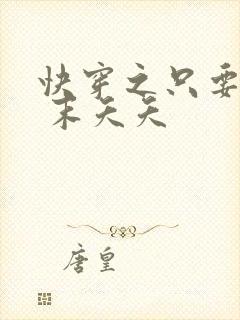 快穿之只要
末天天
唐皇